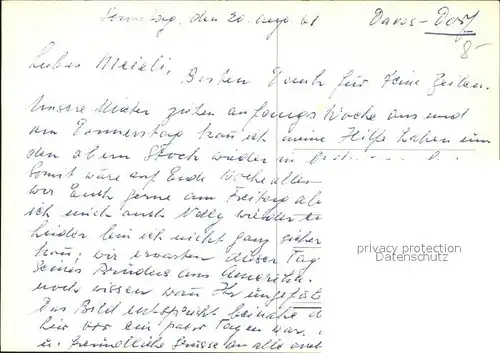 Sonntag, den 20. Aug 61 Davos-Dorf
8-
Liebes Meieli,
Besten Dank für Deine Zeilen.
Unsere Mieter zusten anfangs Woche aus und
am Donnerstag kann ich meine Hilfe haben um
den obern Stock wieder in
Sonst wäre auf Ende Woche alles
wir Euch gerne am Freitag ab
ich mich auch Nelly wieder
Leider bin ich nicht ganz sicher
kann; wir erwarten dieser Tag
seines Freundes aus Amerika.
noch wissen wann Ihr ungefäh
Das Bild entspricht beinahe d
hier vor ein paar Tagen war.
u. freundliche Grüsse an alle
privacy protection
Datenschutz